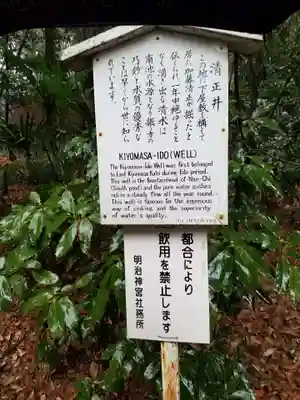 清正井
この地に下屋敷を構えて
居た加藤清正が掘ったと
伝えられ、一年中絶ゆること
なく湧き出る清水は
南池の水源となり掘り方の
巧妙と水質の優秀な
ことは早くから世に知ら
れています。
KIYOMASA-IDO (WELL)
The Kiyomasa-Ido Well was first belonged
to Lord Kiyomasa Kato during Edo period.
This well is the fountainhead of Nan-Chi
(South pond) and the pure water gushes
out in a steady flow all the year round.
This well is famous for the ingenious
way of sinking, and the superiority
of water's quality.
都合により
飲用を禁止します
明治神宮社務所